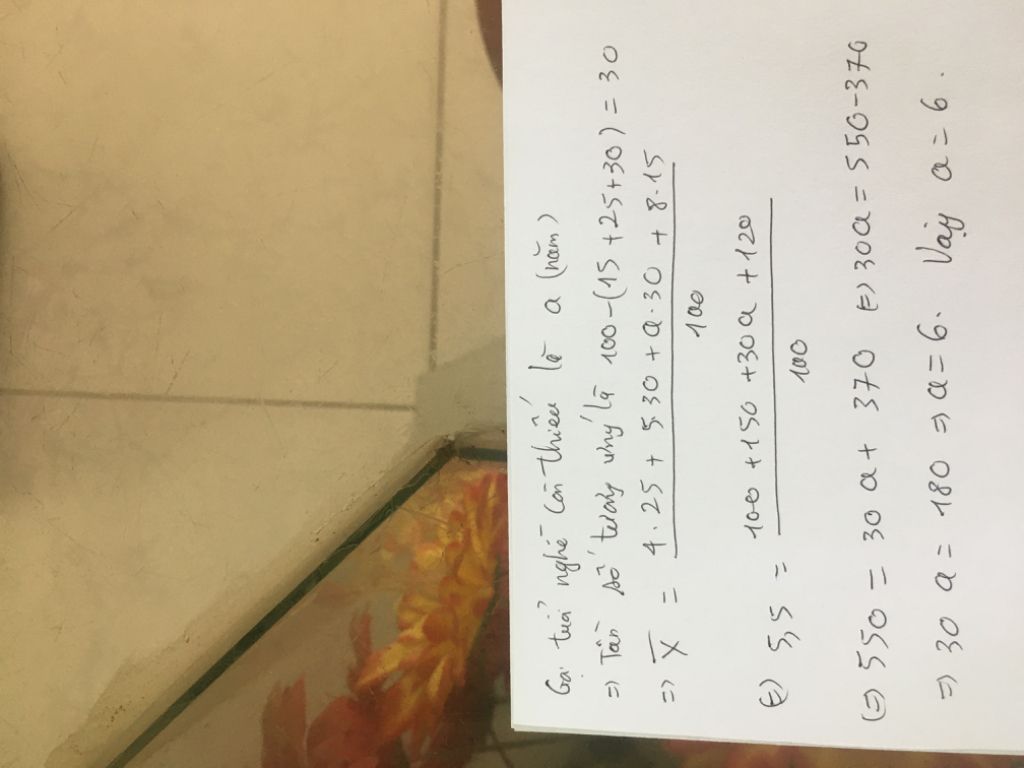 Gọi tuổi nghề còn thiếu là a (năm)
=> Tần số tương ứng là 100-(15+25+30) = 30
=> X̄ = (4.25 + 5.30 + a.30 + 8.15) / 100
(=) 5,5 = (100 + 150 + 30a + 120) / 100
(=) 550 = 30a + 370 (=) 30a = 550-370
=> 30a = 180 => a = 6. Vậy a = 6.